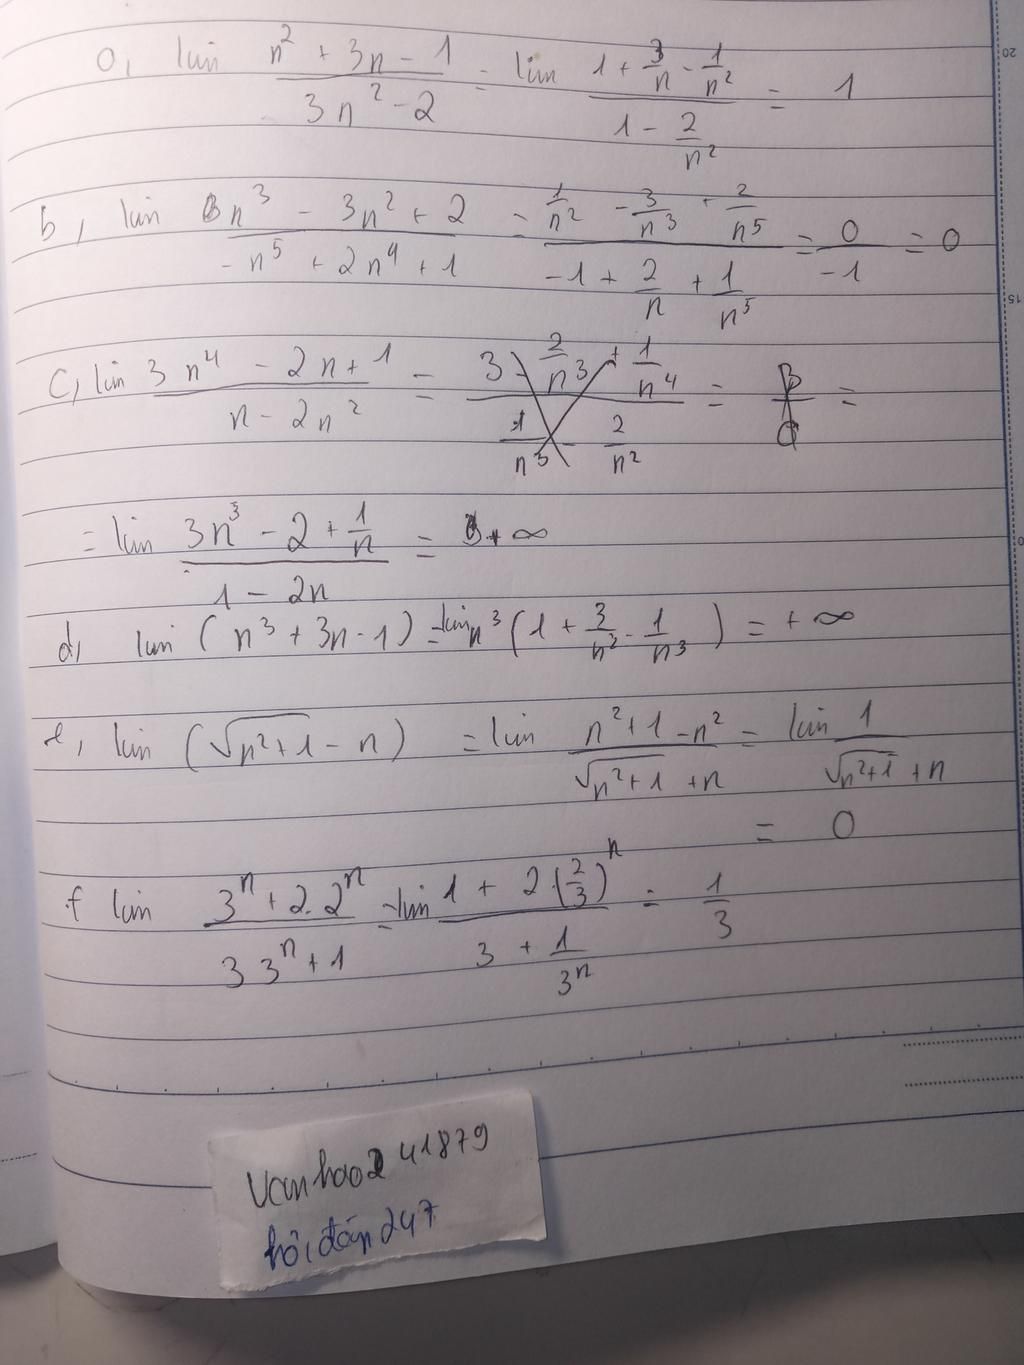 a, lim (n² + 3n - 1)/(3n² - 2) = lim (1 + 3/n - 1/n²)/(1 - 2/n²) = 1
b, lim (n³ - 3n² + 2)/(-n⁵ + 2n⁴ + 1) = (1/n² - 3/n³ + 2/n⁵)/(-1 + 2/n + 1/n⁵) = 0/-1 = 0
c, lim (3n⁴ - 2n + 1)/(n - 2n²) = (3 - 2/n³ + 1/n⁴)/(1/n³ - 2/n²) = 3/0 =
= lim (3n³ - 2 + 1/n)/(1 - 2n) = + ∞
d, lim (n³ + 3n - 1) = lim n³(1 + 3/n² - 1/n³) = + ∞
e, lim (√(n²+1) - n) = lim (n² + 1 - n²)/(√(n²+1) + n) = lim 1/(√(n²+1) + n)
= 0
f lim (3ⁿ + 2.2ⁿ)/(3 3ⁿ + 1) = lim (1 + 2.(2/3)ⁿ)/(3 + 1/3ⁿ) = 1/3
Vanhao241879
hỏi đáp 247
20
15